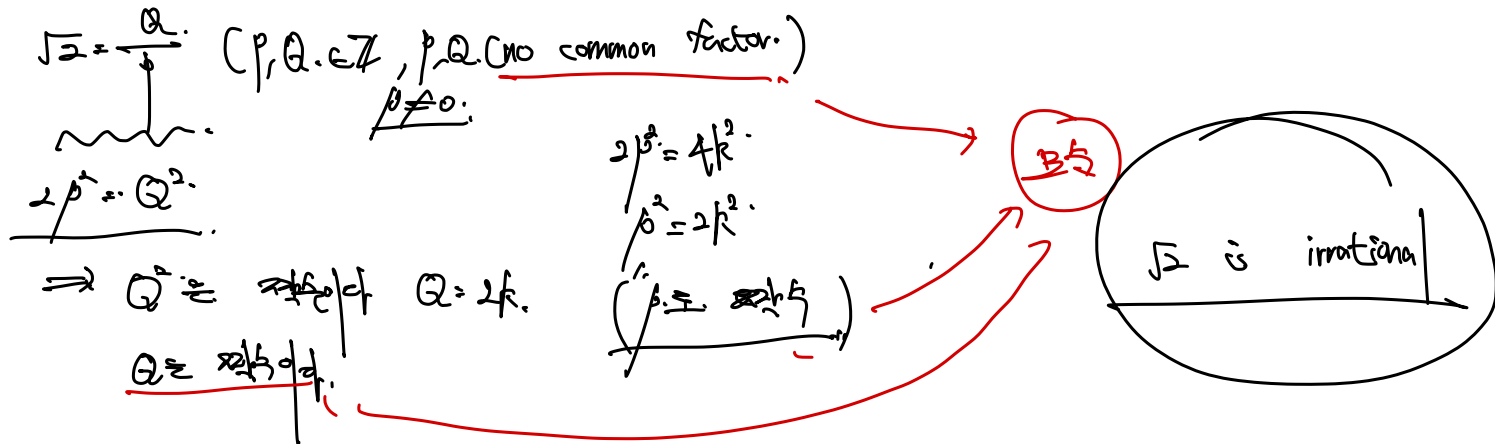 √2 = Q/p (p, Q ∈ ℤ, p, Q (no common factor.)
p ≠ 0.
2p² = Q².
⇒ Q²는 짝수이다 Q = 2k.
Q는 짝수이다.
2p² = 4k².
p² = 2k².
(p는 짝수)
모순
√2 is irrational